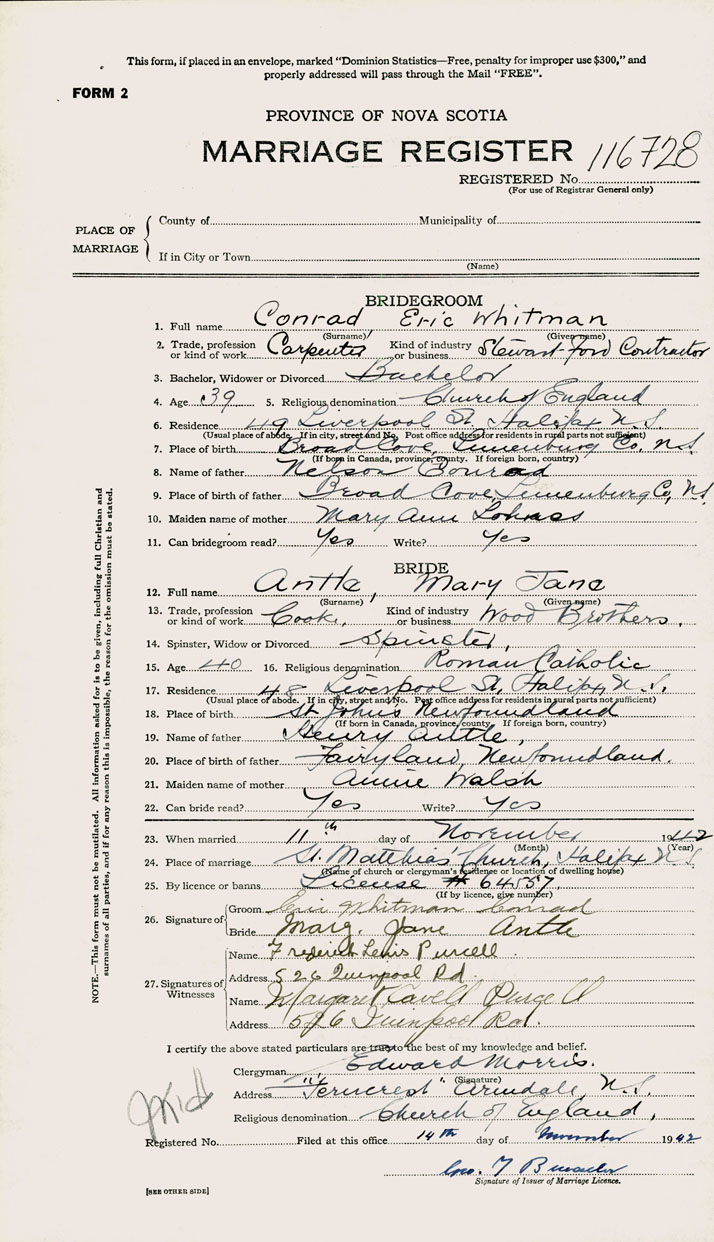 This form, if placed in an envelope, marked "Dominion Statistics—Free, penalty for improper use $300," and
properly addressed will pass through the Mail "FREE".
FORM 2
PROVINCE OF NOVA SCOTIA
MARRIAGE REGISTER 116728
REGISTERED No.
(For use of Registrar General only)
PLACE OF MARRIAGE
County of Municipality of
If in City or Town
(Name)
BRIDEGROOM
1. Full name Conrad Eric Whitman
(Surname) (Given name)
2. Trade, profession or kind of work Carpenter Kind of industry or business Stewart Ford Contractor
3. Bachelor, Widower or Divorced Bachelor
4. Age 39 5. Religious denomination Church of England
6. Residence 49 Liverpool St. Halifax N.S.
(Usual place of abode. If in city, street and No. Post office address for residents in rural parts not sufficient)
7. Place of birth Broad Cove, Lunenburg Co. N.S.
(If born in Canada, province, county. If foreign born, country)
8. Name of father Nelson Conrad
9. Place of birth of father Broad Cove, Lunenburg Co, N.S.
10. Maiden name of mother Mary Ann Lohnes
11. Can bridegroom read? Yes Write? Yes
BRIDE
12. Full name Antle, Mary Jane
(Surname) (Given name)
13. Trade, profession or kind of work Cook, Kind of industry or business Wood Brothers.
14. Spinster, Widow or Divorced Spinster,
15. Age 40 16. Religious denomination Roman Catholic
17. Residence 48 Liverpool St, Halifax, N.S.
(Usual place of abode. If in city, street and No. Post office address for residents in rural parts not sufficient)
18. Place of birth St John's Newfoundland
(If born in Canada, province, county. If foreign born, country)
19. Name of father Henry Antle,
20. Place of birth of father Fairyland, Newfoundland.
21. Maiden name of mother Annie Walsh
22. Can bride read? Yes Write? Yes
23. When married 11th day of November 1942
(Month) (Year)
24. Place of marriage St. Matthias' Church, Halifax N.S.
(Name of church or clergyman's residence or location of dwelling house)
25. By licence or banns License # 64557
(If by licence, give number)
26. Signature of
Groom Eric Whitman Conrad
Bride Mary Jane Antle
27. Signatures of Witnesses
Name Frederick Lewis Purcell
Address 526 Quinpool Rd.
Name Margaret Cavell Purcell
Address 526 Quinpool Rd.
I certify the above stated particulars are true to the best of my knowledge and belief.
Clergyman Edward Morris.
(Signature)
Address "Ferncrest" Armdale, N.S.
Religious denomination Church of England,
Registered No. Filed at this office 14th day of November 1942
Geo. T
Signature of Issuer of Marriage Licence.
[SEE OTHER SIDE]
NOTE.—This form must not be mutilated. All information asked for is to be given, including full Christian and
surnames of all parties, and if for any reason this is impossible, the reason for the omission must be stated.